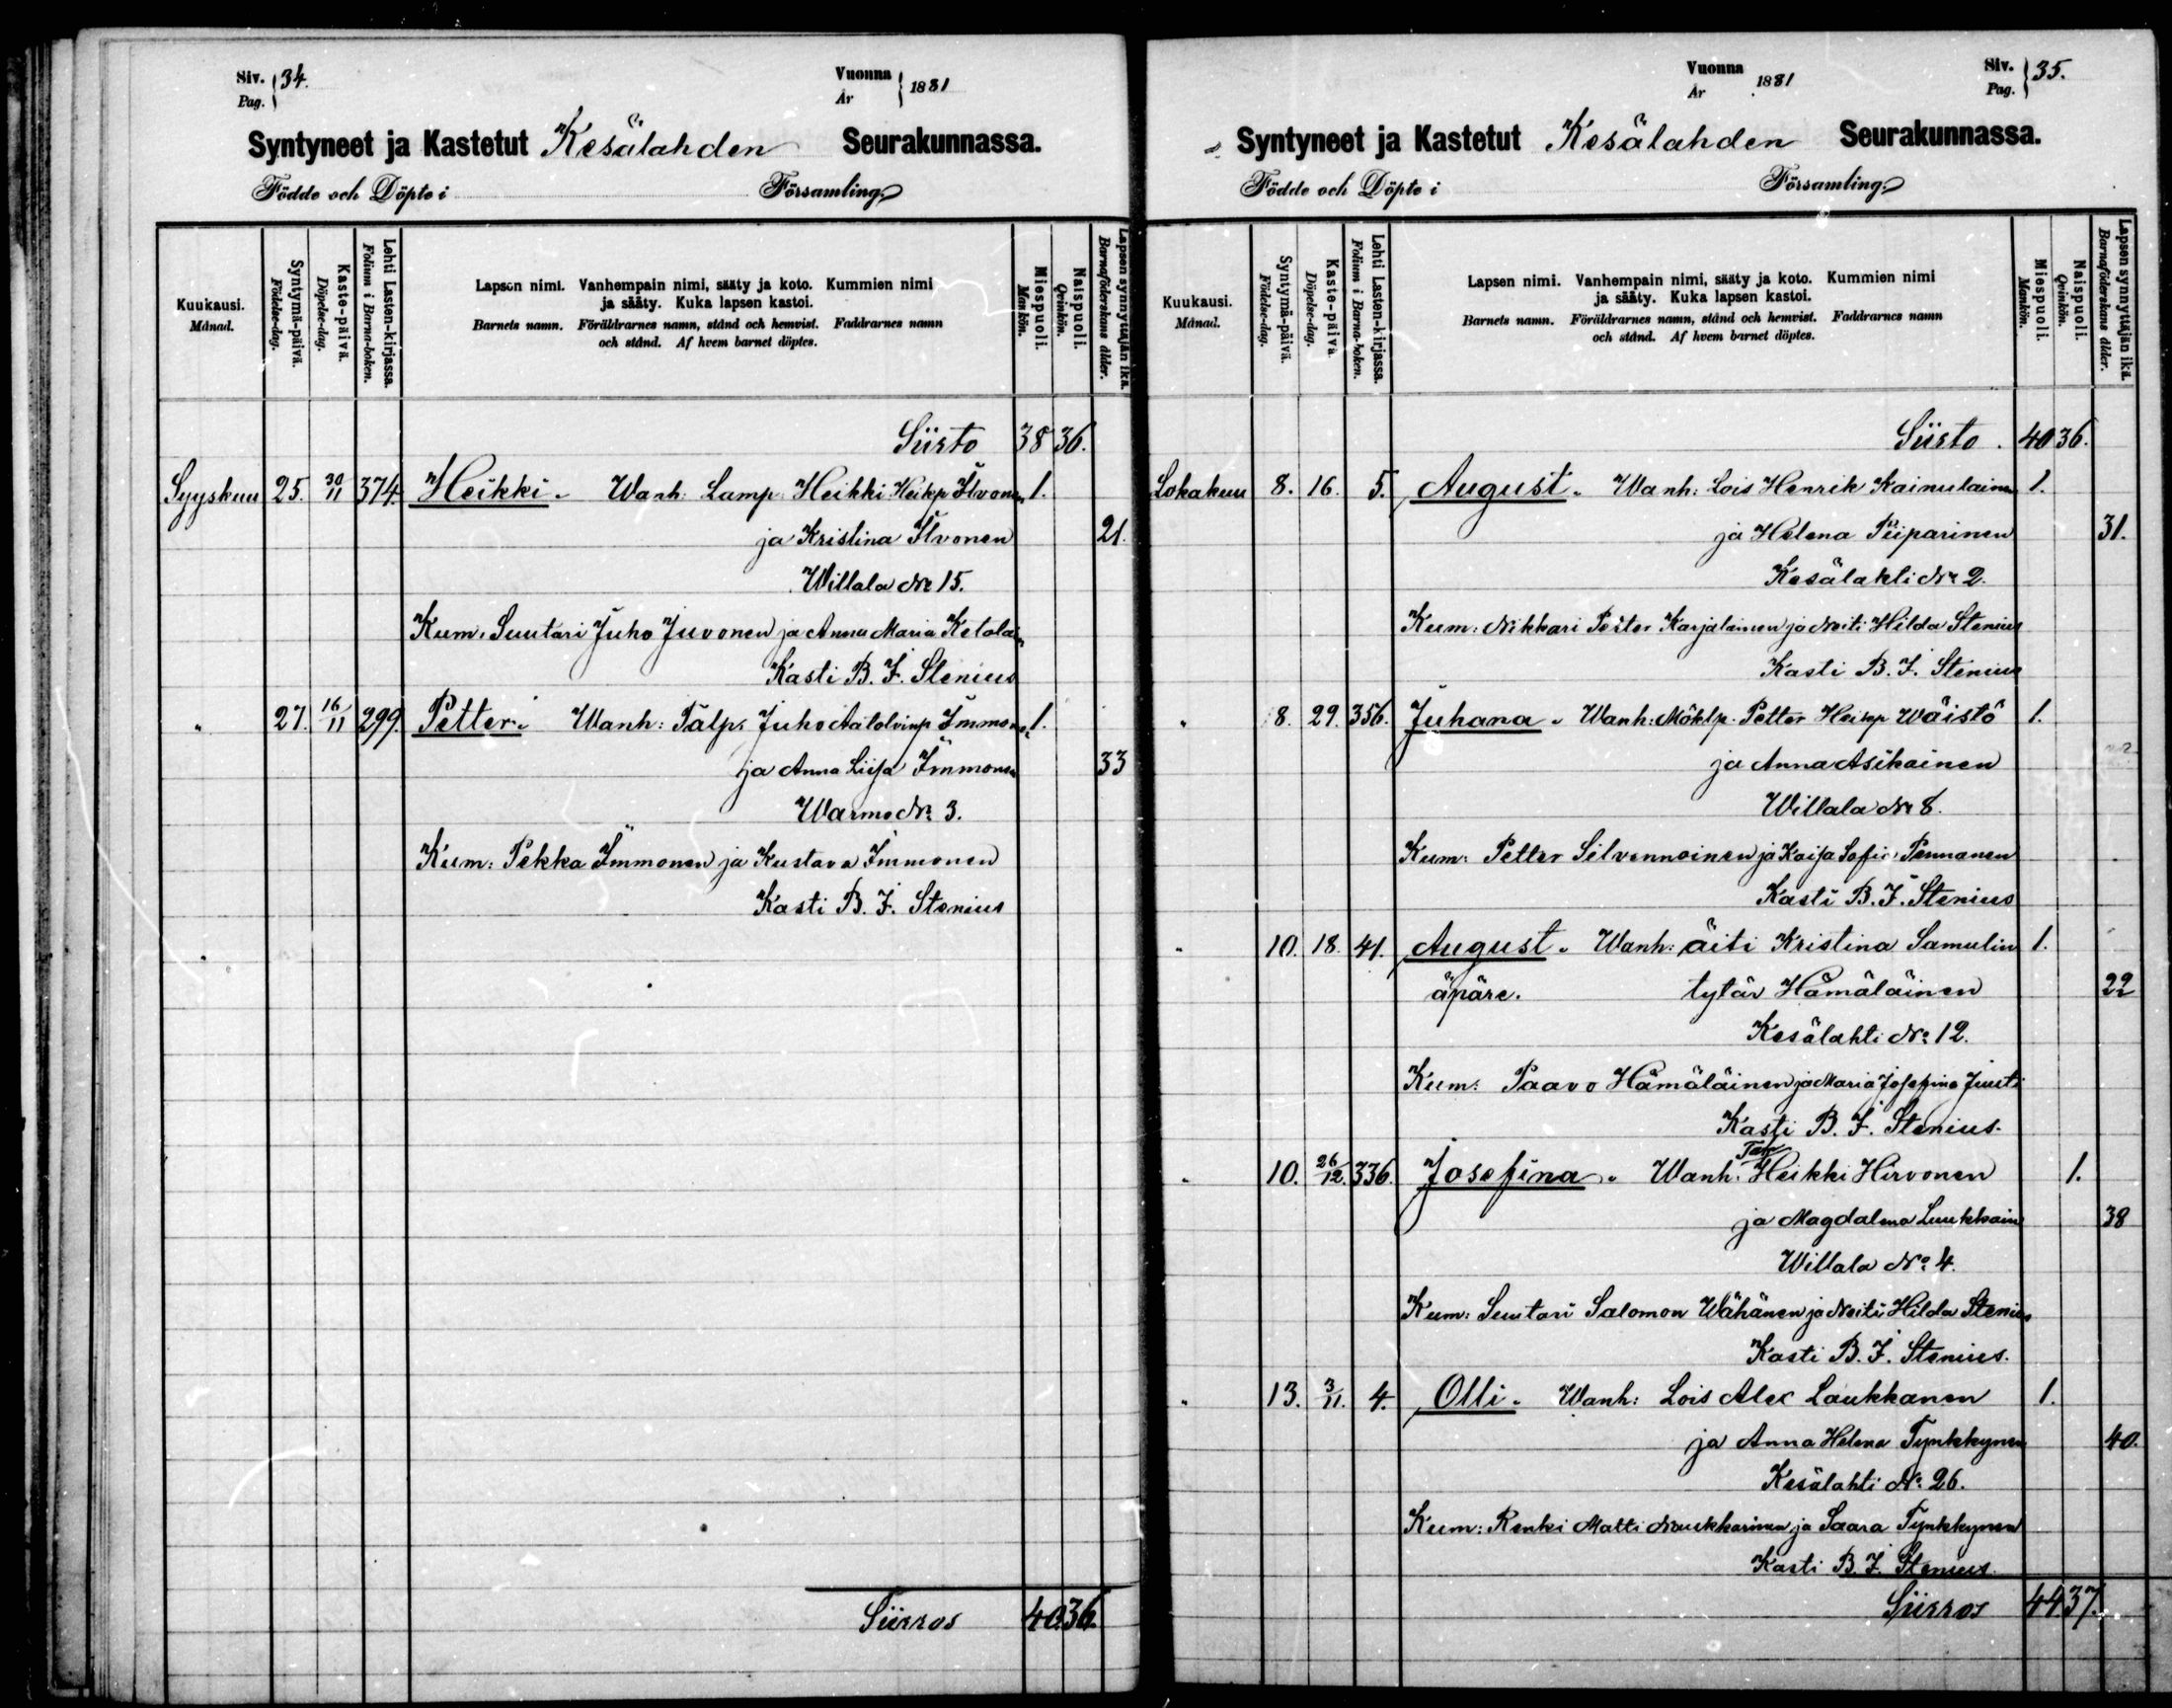 Siv. 34.
Pag.
Vuonna 1881
År
Syntyneet ja Kastetut Kesälahden Seurakunnassa.
Födde och Döpte i Församling.
Kuukausi.
Månad.
Syntymä-päivä.
Födelse-dag.
Kaste-päivä.
Döpelse-dag.
Lehti Lasten-kirjassa.
Folium i Barna-boken.
Lapsen nimi. Vanhempain nimi, sääty ja koto. Kummien nimi
ja sääty. Kuka lapsen kastoi.
Barnets namn. Föräldrarnes namn, stånd och hemvist. Faddrarnes namn
och stånd. Af hvem barnet döptes.
Miespuoli.
Mankön.
Naispuoli.
Qvinkön.
Lapsen synnyttäjän ikä.
Barnaföderskans ålder.
Siirto 38 36.
Syyskuu 25. 30/11 374. Heikki. Wanh: Lamp. Heikki Heikp Ilvonen 1.
ja Kristina Ilvonen 21.
Willala No 15.
Kum: Suutari Juho Juvonen ja Anna Maria Ketolain
Kasti B. J. Stenius
" 27. 16/11 299. Petter. Wanh: Talp. Juho Aatolvinp Immonen 1.
ja Anna Liisa Immonen 33
Warmo No 3.
Kum: Pekka Immonen ja Kustava Immonen
Kasti B. J. Stenius
Siirros 40 36.
Vuonna 1881
År
Siv. 35.
Pag.
Syntyneet ja Kastetut Kesälahden Seurakunnassa.
Födde och Döpte i Församling.
Kuukausi.
Månad.
Syntymä-päivä.
Födelse-dag.
Kaste-päivä
Döpelse-dag.
Lehti Lasten-kirjassa.
Folium i Barna-boken.
Lapsen nimi. Vanhempain nimi, sääty ja koto. Kummien nimi
ja sääty. Kuka lapsen kastoi.
Barnets namn. Föräldrarnes namn, stånd och hemvist. Faddrarnes namn
och stånd. Af hvem barnet döptes.
Miespuoli.
Mankön.
Naispuoli.
Qvinkön.
Lapsen synnyttäjän ikä.
Barnaföderskans ålder.
Siirto. 40 36.
Lokakuu 8. 16. 5. August. Wanh: Lois Henrik Kainulainen 1.
ja Helena Piiparinen 31.
Kesälahti No 2.
Kum: Nikkari Petter Karjalainen ja Neiti Hilda Stenius
Kasti B. J. Stenius
" 8. 29. 356. Juhana. Wanh: Möklp. Petter Heikp Wäistö 1.
ja Anna Asikainen
Willala No 8.
Kum: Petter Silvennoinen ja Kaisa Sofia Pennanen
Kasti B. J. Stenius
" 10. 18. 41. August. Wanh: äiti Kristina Samulin 1.
äpäre. tytär Hämäläinen 22
Kesälahti No 12.
Kum: Paavo Hämäläinen ja Maria Josefina Juusti
Kasti B. J. Stenius.
" 10. 26/12. 336. Josefina. Wanh: Heikki Hirvonen 1.
ja Magdalena Luukkain 38
Willala No 4.
Kum: Suutari Salomon Wähänen ja Neiti Hilda Stenius
Kasti B. J. Stenius.
" 13. 3/11. 4. Olli. Wanh: Lois Alex Laukkanen 1.
ja Anna Helena Tynkkynen 40.
Kesälahti No 26.
Kum: Renki Matti Naukkarinen ja Saara Tynkkynen
Kasti B. J. Stenius.
Siirros 44 37.